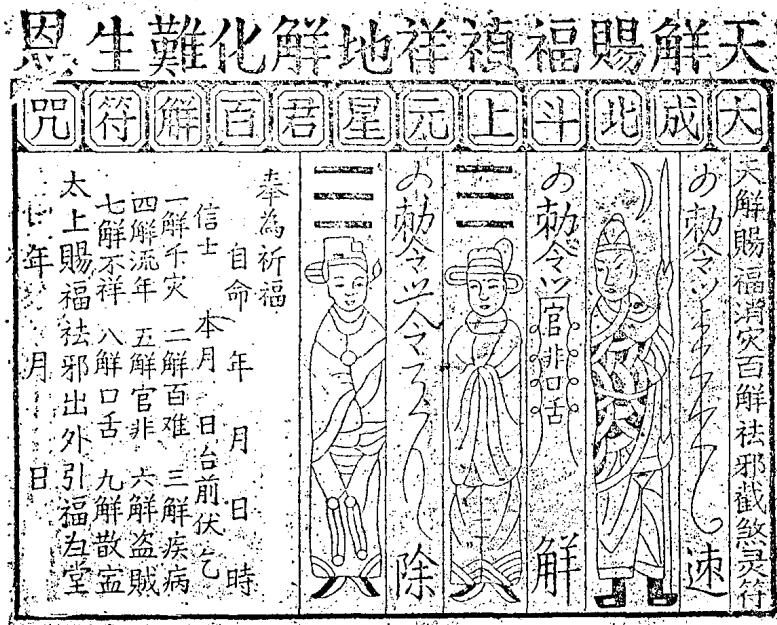 天解賜福禎祥地解化難生恩
大成北斗上元星君百解符咒
天解賜福消灾百解祛邪截煞灵符
勅令
速
勅令
官非口舌
解
勅令
除
奉為祈福
自命 年 月 日 時
信士 本月 日台前伏乞
一解千灾 二解百难 三解疾病
四解流年 五解官非 六解盗賊
七解不祥 八解口舌 九解散
太上賜福祛邪出外引福堂
年 月 日